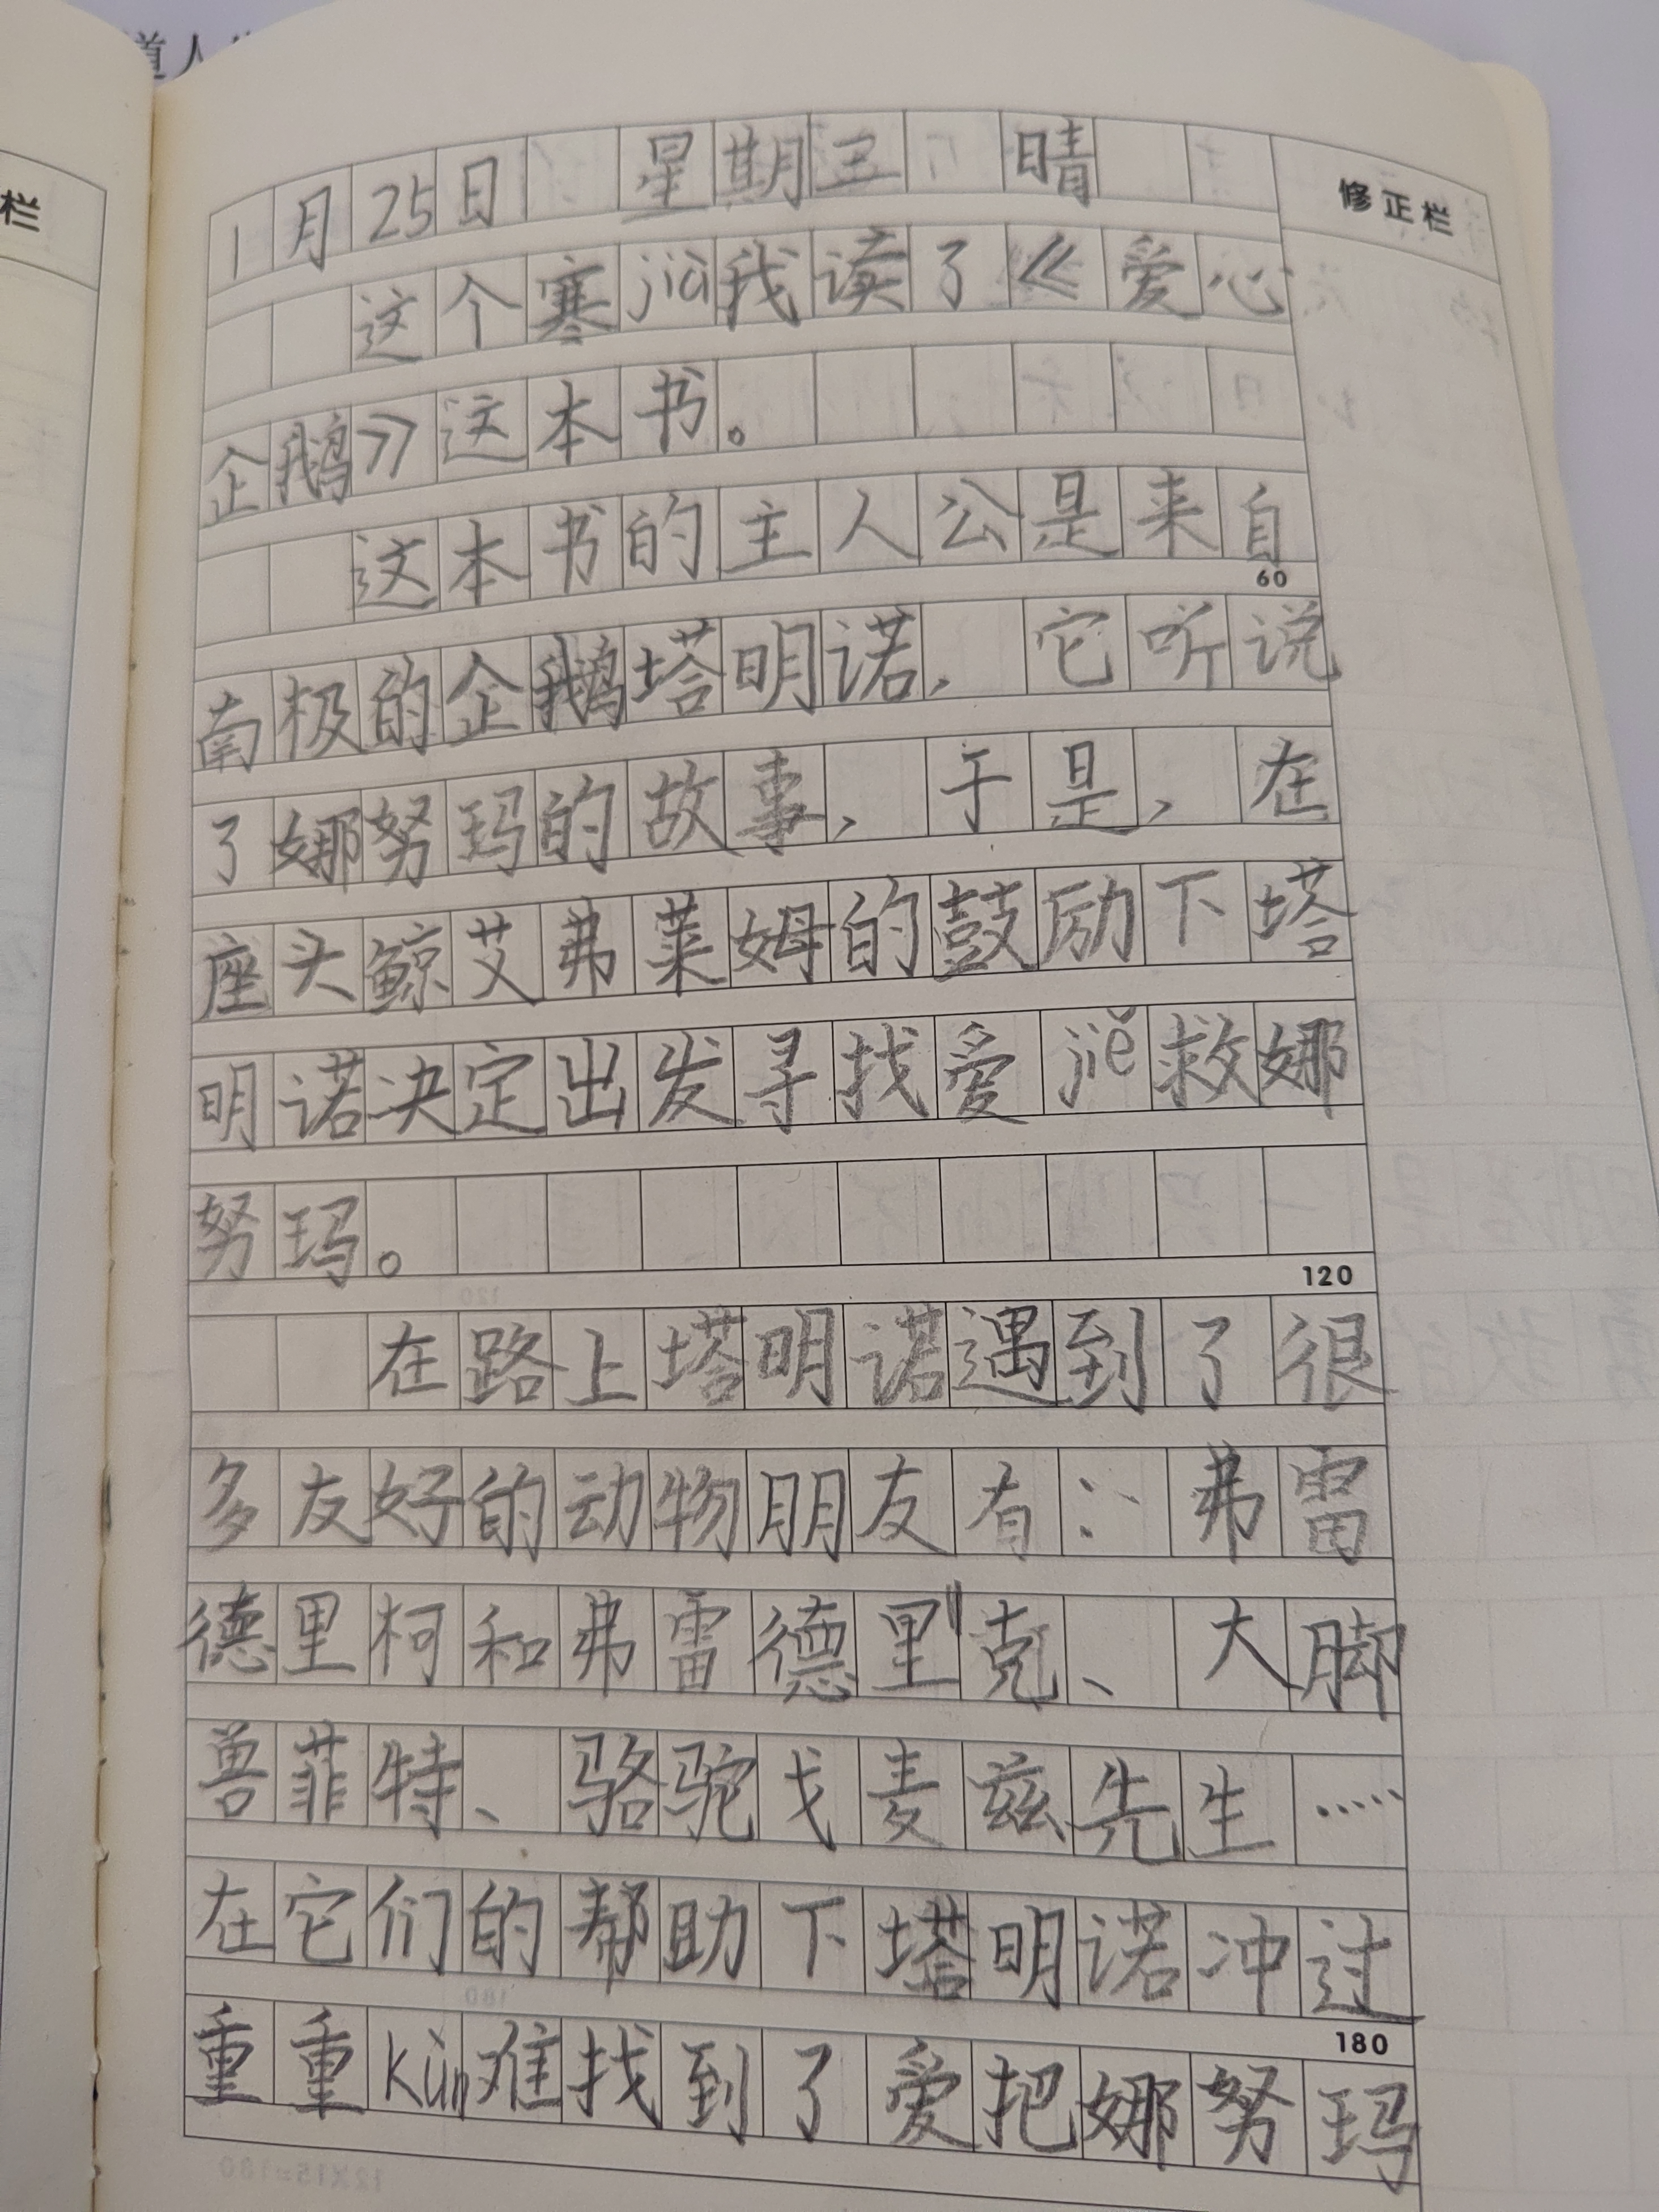 栏
道人
1月25日 星期三 晴
修正栏
这个寒jià我读了《爱心
企鹅》这本书。
这本书的主人公是来自
60
南极的企鹅塔明诺，它听说
了娜努玛的故事，于是，在
座头鲸艾弗莱姆的鼓励下塔
明诺决定出发寻找爱jiě救娜
努玛。
120
在路上塔明诺遇到了很
多友好的动物朋友有：弗雷
德里柯和弗雷德里克、大脚
兽菲特、骆驼戈麦兹先生……
在它们的帮助下塔明诺冲过
180
重重kùn难找到了爱把娜努玛